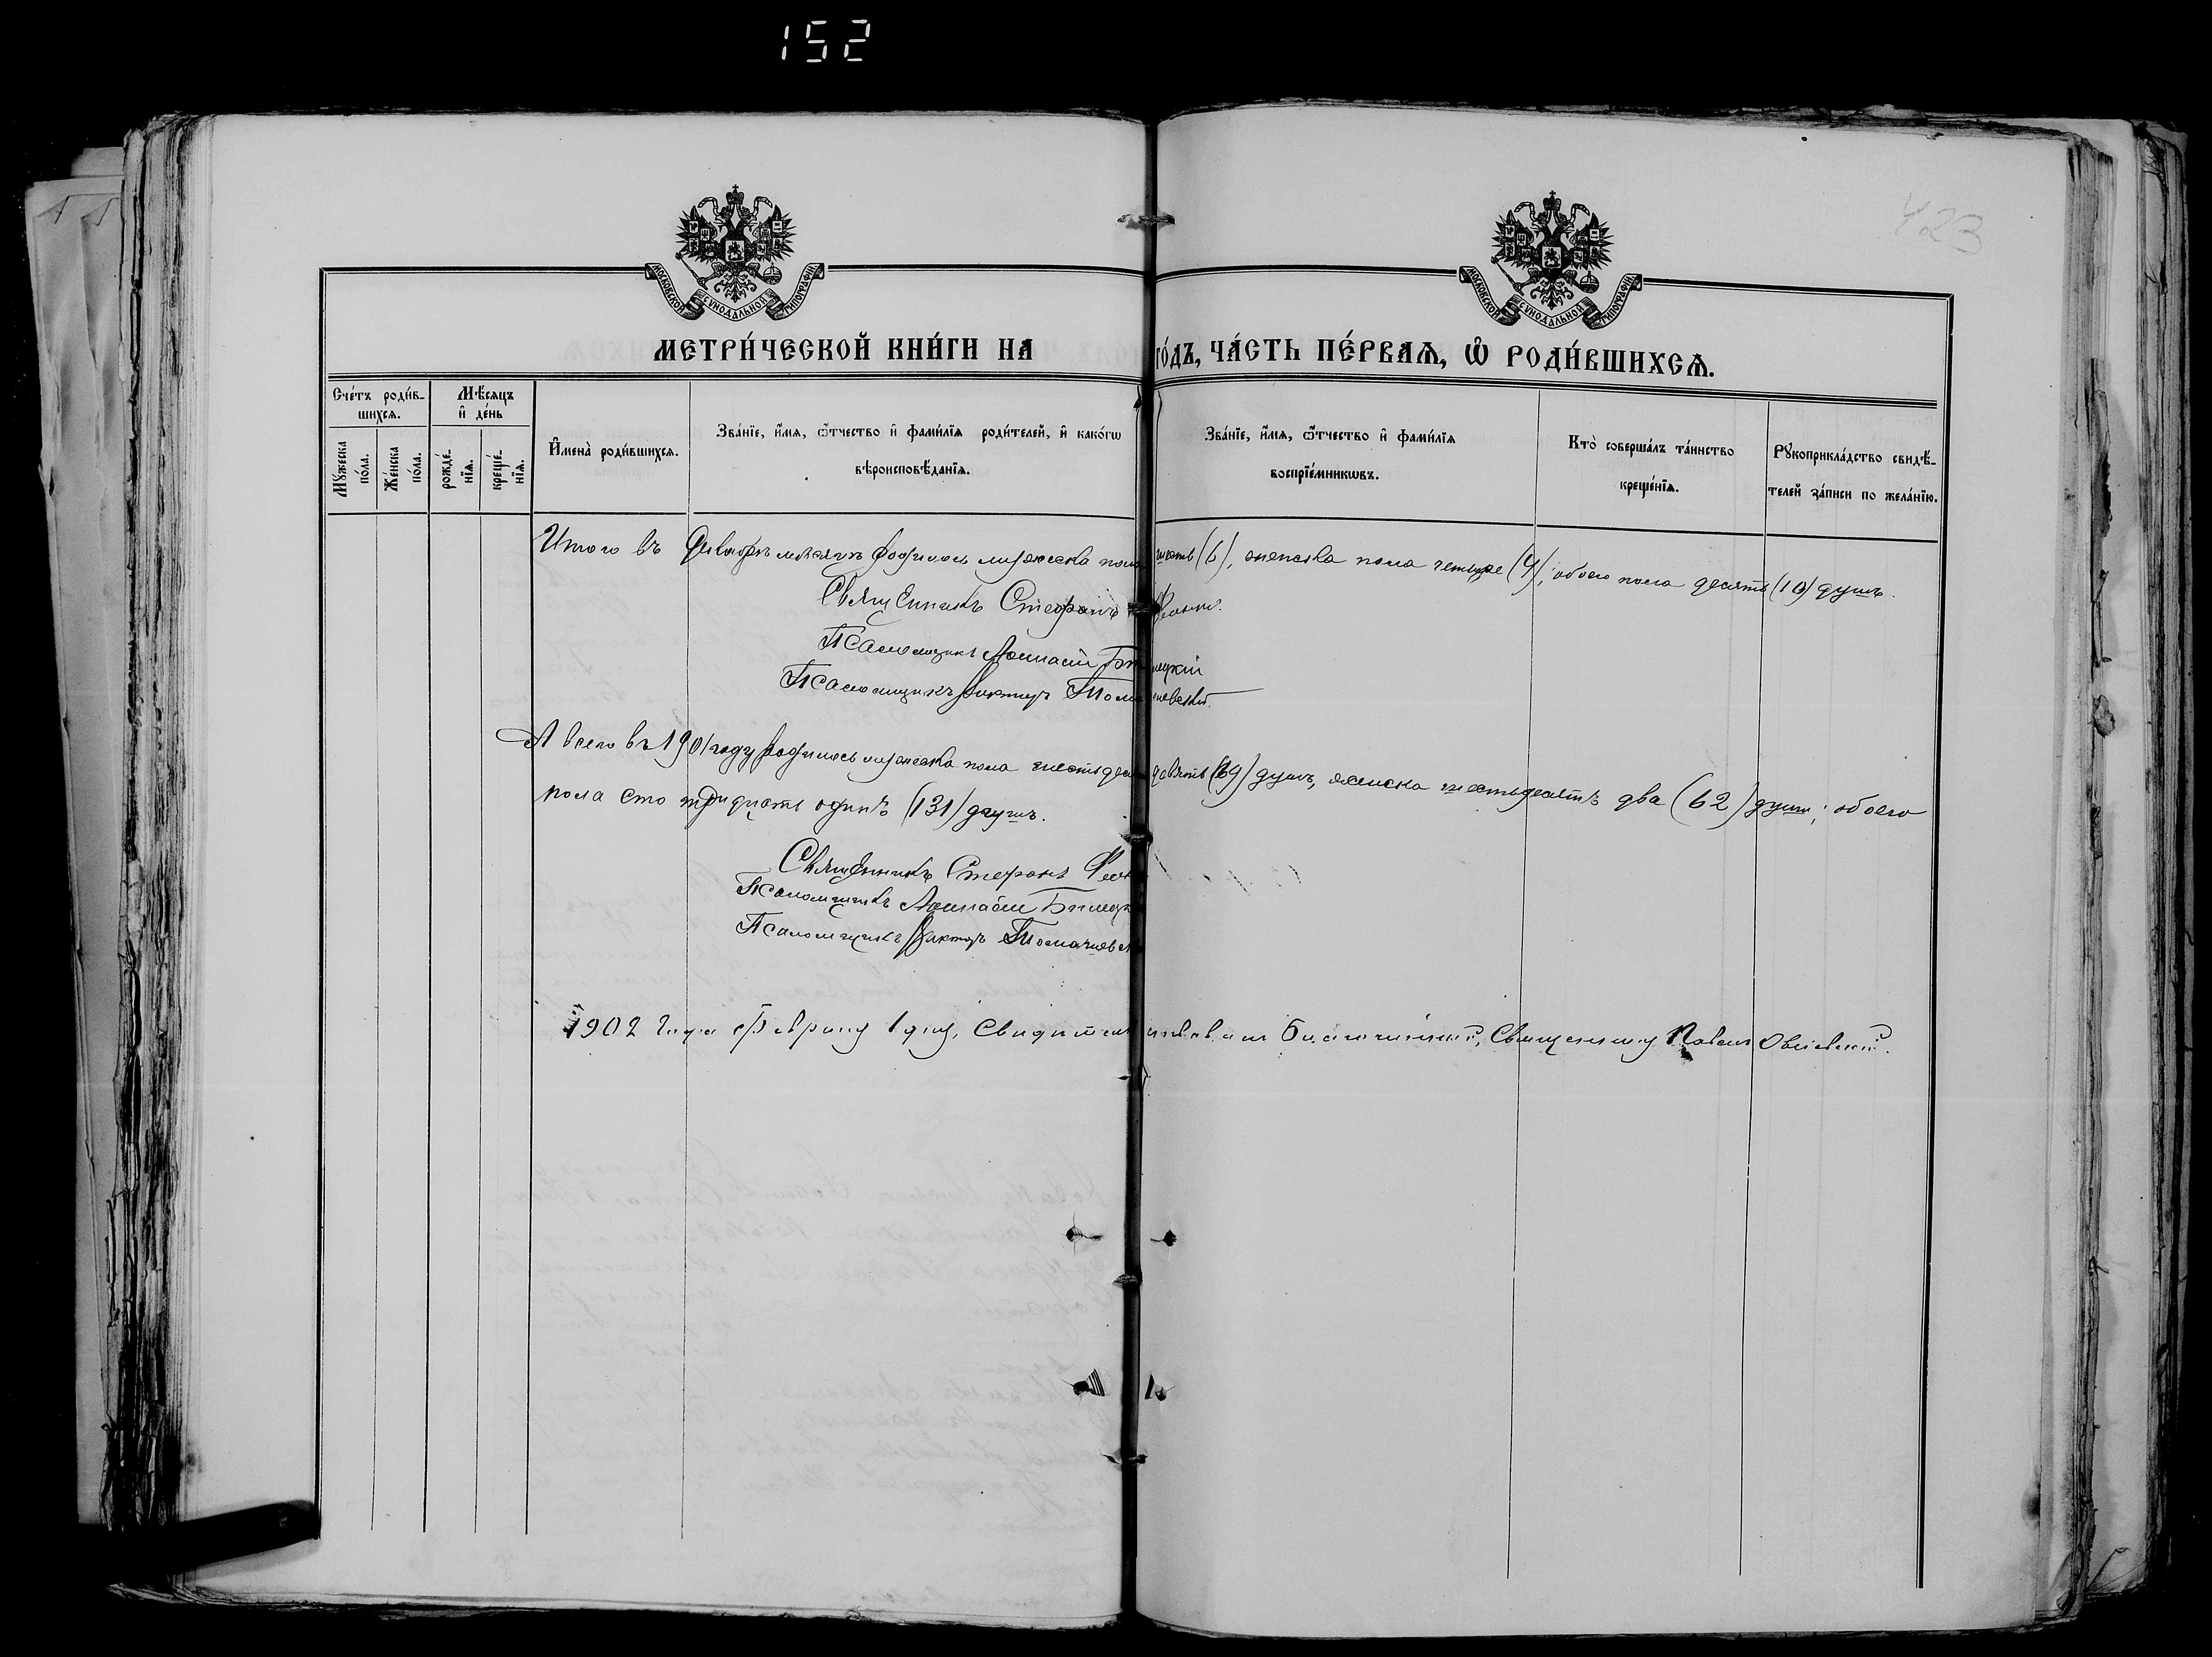 152
423
МОСКОВСКОЙ СѴНОДАЛЬНОЙ ТИПОГРАФІИ
МОСКОВСКОЙ СѴНОДАЛЬНОЙ ТИПОГРАФІИ
МЕТРИ́ЧЕСКОЙ КНИ́ГИ НА ГО́ДЪ, ЧА́СТЬ ПЕ́РВАѦ, Ѽ РОДИ́ВШИХСѦ.
Сче́тъ роди́в-
шихсѧ.
Мꙋ́жеска по́ла.
Же́нска по́ла.
Мѣ́сѧцъ
и҆ де́нь
рожде́-
нїѧ.
креще́-
нїѧ.
И҆мена̀ роди́вшихсѧ.
Зва́нїе, и҆́мѧ, ѻ҆́тчество и҆ фами́лїѧ роди́телей, и҆ како́гѡ
вѣроисповѣ́данїѧ.
Зва́нїе, и҆́мѧ, ѻ҆́тчество и҆ фами́лїѧ
воспрїе́мникѡвъ.
Кто̀ соверша́лъ та́инство
креще́нїѧ.
Рꙋкоприкла́дство свидѣ́-
телей за́писи по жела́нїю.
Итого въ Декабрѣ мѣсяцѣ родилось мужеска пола шесть (6), женска пола четыре (4), обоего пола десять (10) душъ.
Священникъ Стефанъ
Псаломщикъ Аѳанасій
Псаломщикъ Викторъ Томашевскій.
А всего въ 1901 году родилось мужеска пола шестьдесятъ девять (69) душъ, женска шестьдесятъ два (62) души; обоего
пола сто тридцать одинъ (131) душъ.
Священникъ Стефанъ
Псаломщикъ Аѳанасій
Псаломщикъ Викторъ Томашевск
1902 года Февраля 1 дня, Свидѣтельствовалъ Благочинный, Священникъ Павелъ